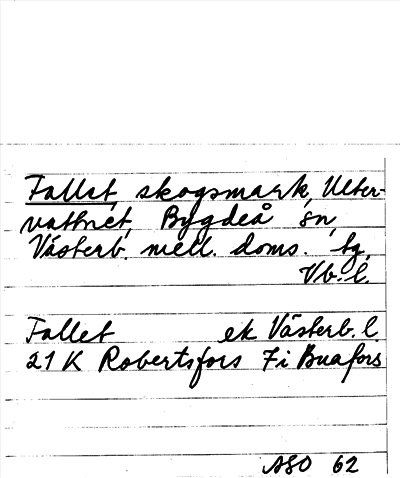 Fallet, skogsmark, Ulter-
vattnet, Bygdeå sn,
Västerb. mell. doms. tg,
Vb. l.
Fallet ek Västerb. l.
21 K Robertsfors 7 i Buafors
ASO 62